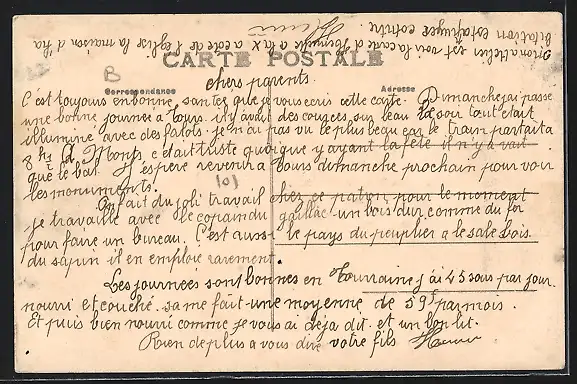 mon atelier est voir la carte d'Hommes a la X a coté de l'église la maison d'ha
bitation est
CARTE POSTALE
B
Correspondance
Adresse
chers parents.
C'est toujours en bonne santez que je vous ecris cette carte. Dimanche j'ai passe
une bonne journee a Tours. il y avait des courses sur l'eau le soir tout etait
illuminé avec des falots. je n'ai pas vu le plus beau car le train partait a
8 hs d Monts, c'etait triste quoique y ayant la fête il n'y avait
que le bal. J'espère revenir a Tours dimanche prochain pour voir
les monuments.
101
On fait du joli travail chez ce patron, pour le moment
je travaille avec le copain du gaillac un bois dur comme du fer
pour faire un bureau. C'est aussi le pays du peuplier a le sale bois
du sapin il en emploie rarement.
Les journées sont bonnes en Tourraine j'ai 45 sous par jour
nourri et couché. sa me fait une moyenne de 59f par mois.
Et puis bien nourri comme je vous ai deja dit. et un bon lit.
Rien de plus a vous dire votre fils Henri